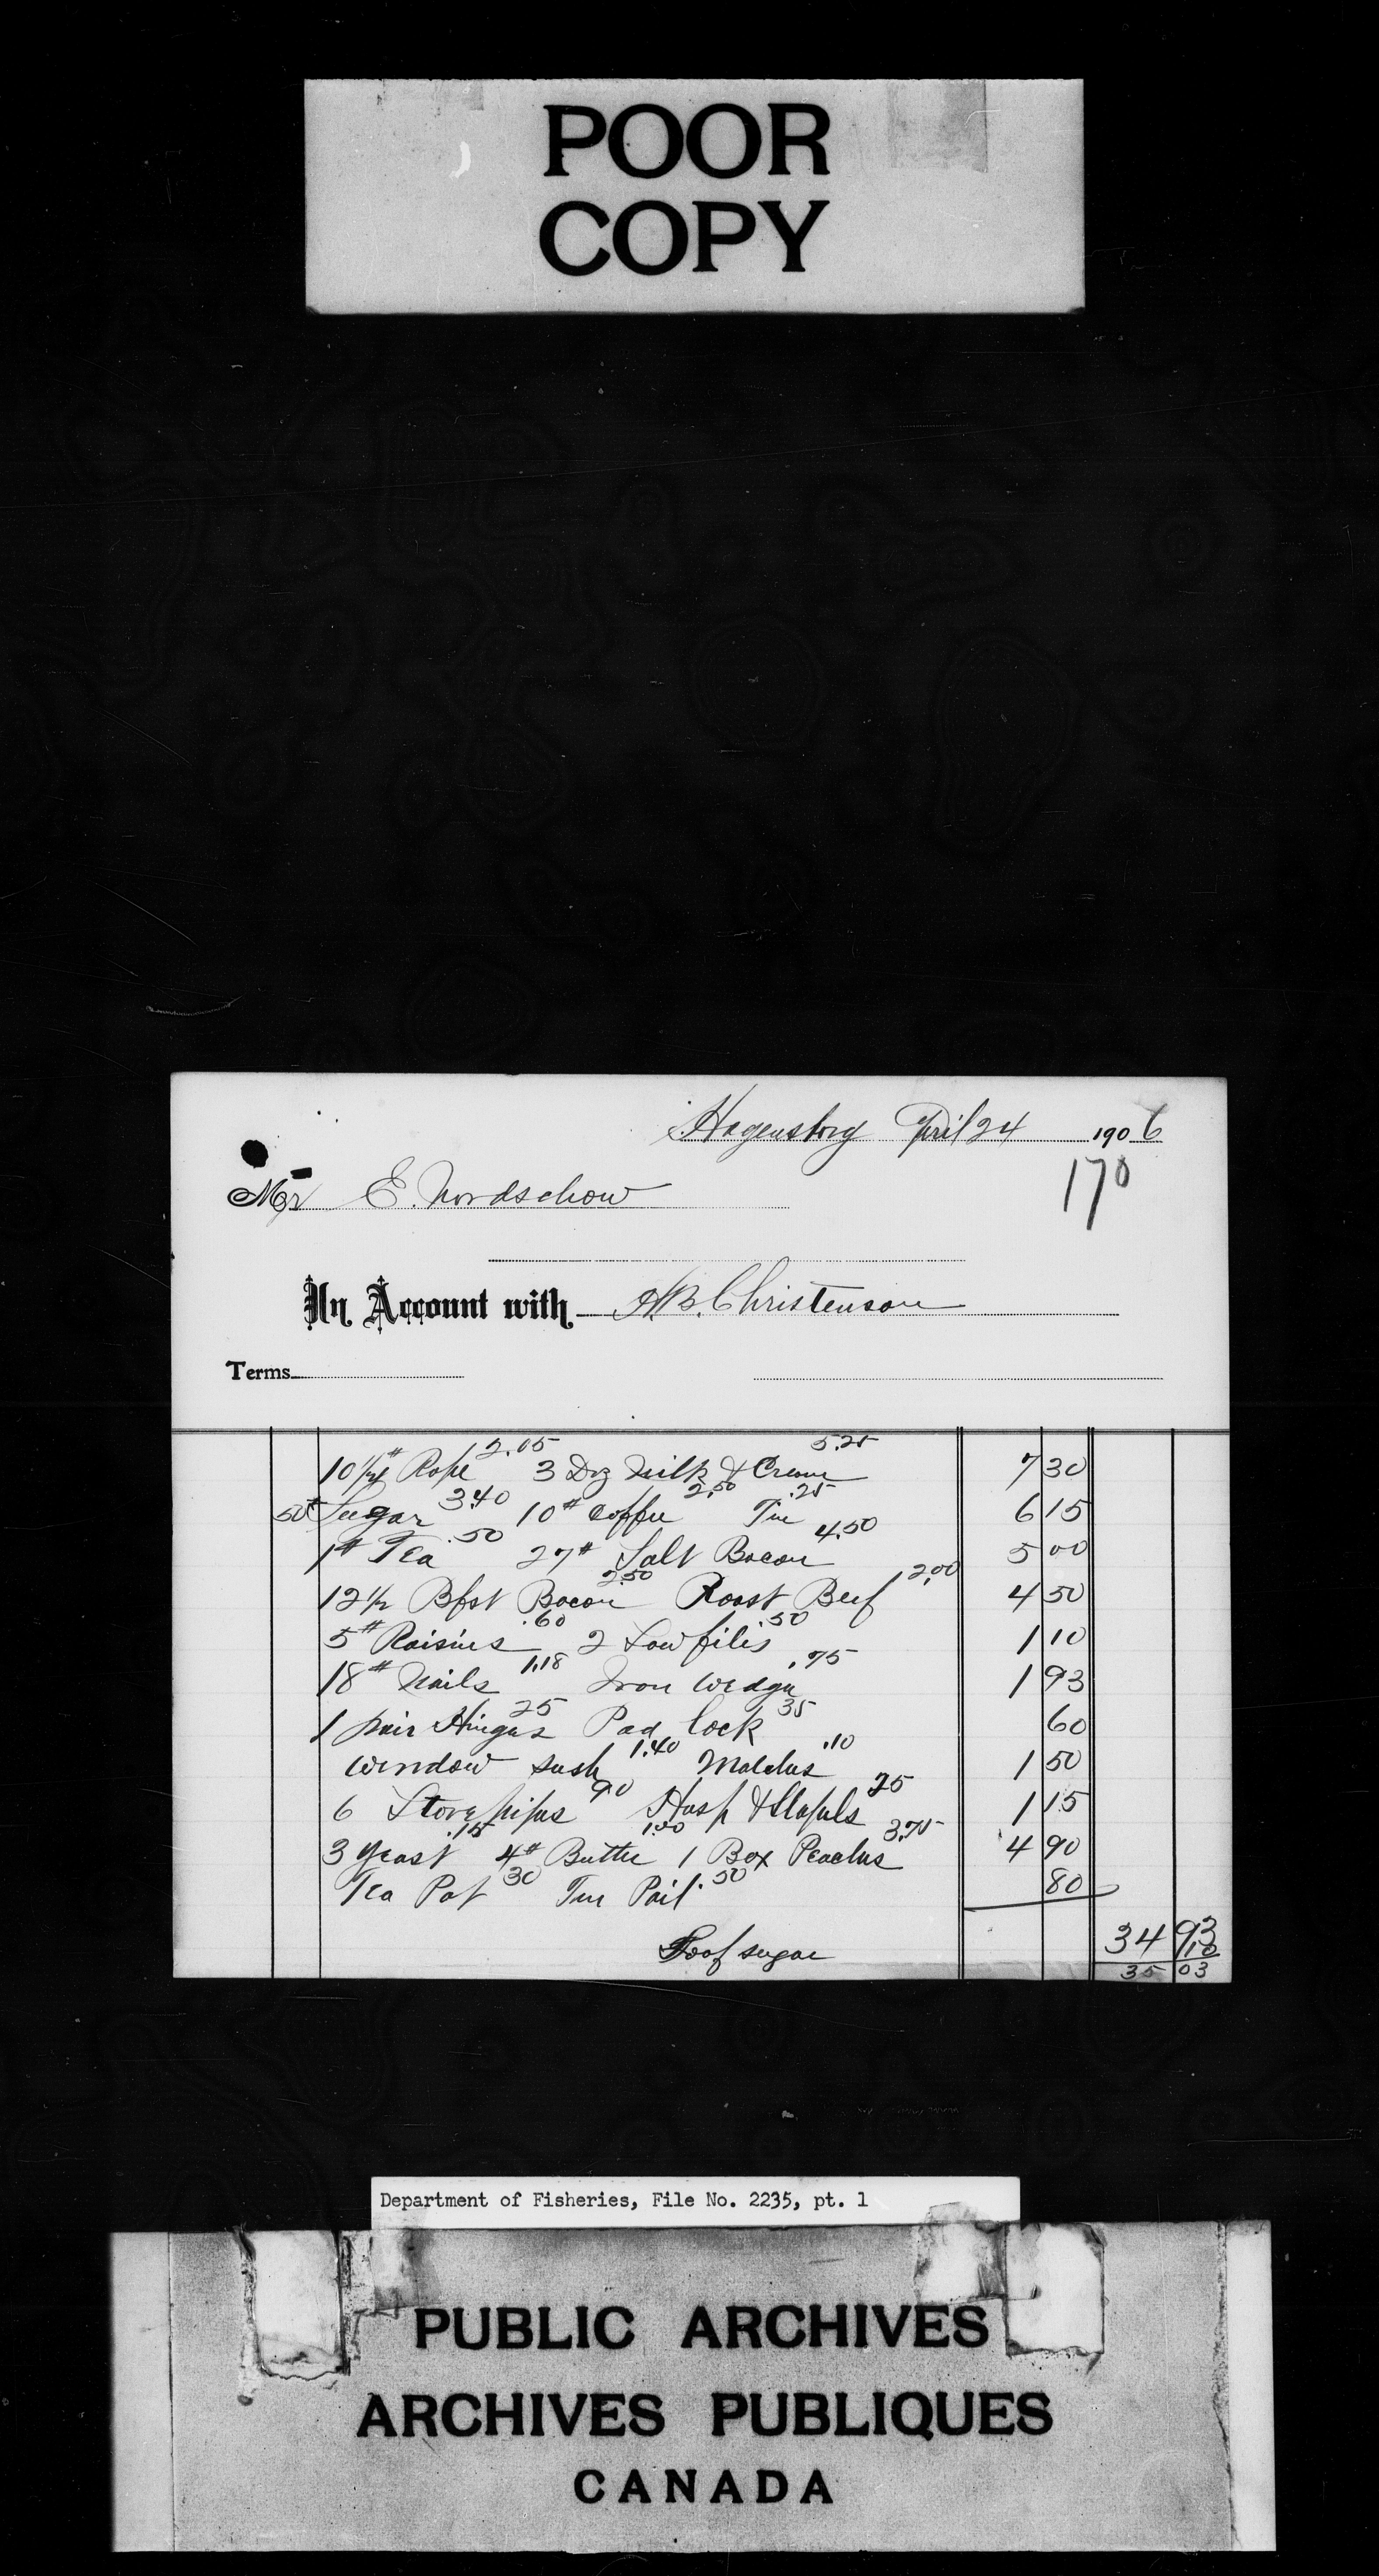 POOR
COPY
Hagensborg April 24 1906
170
Mr E. Nordschow
In Account with A.B. Christenson
Terms
10 1/4# Rope 2.05 3 Doz Milk & Cream 5.25 7 30
50# Sugar 3.40 10# Coffee 2.50 Tin .25 6 15
1# Tea .50 27# Salt Bacon 4.50 5 00
12 1/2 Bfst Bacon 2.50 Roast Beef 2.00 4 50
5# Raisins .60 2 Saw files .50 1 10
18# Nails 1.18 Iron Wedge .75 1 93
1 pair Hinges 25 Pad lock 35 60
window sash 1.40 Matches .10 1 50
6 Stovepipes 90 Hasp & Stapels 25 1 15
3 Yeast .15 4# Butter 1.00 1 Box Peaches 3.75 4 90
Tea Pot 30 Tin Pail .50 80
34 93
Loaf sugar 10
35 03
Department of Fisheries, File No. 2235, pt. 1
PUBLIC ARCHIVES
ARCHIVES PUBLIQUES
CANADA